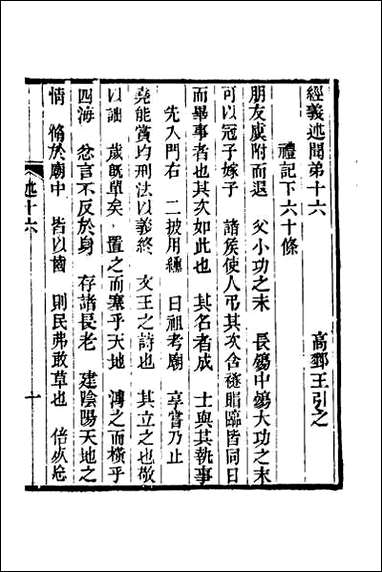 經義述聞弟十六
高郵王引之
禮記下六十條
朋友虞附而退　父小功之末　長殤中殤大功之末
可以冠子嫁子　諸侯使人弔其次含襚賵臨皆同日
而畢事者也其次如此也　其名者成　士與其執事
先入門右　二披用纁　曰祖考廟　享嘗乃止
堯能賞均刑法以義終　文王之詩也　其立之也敬
以詘　歲既單矣　置之而塞乎天地　溥之而橫乎
四海　忿言不反於身　存諸長老　建陰陽天地之
情　脩於廟中　皆以齒　則民弗敢草也　倍以忠
述十六
一